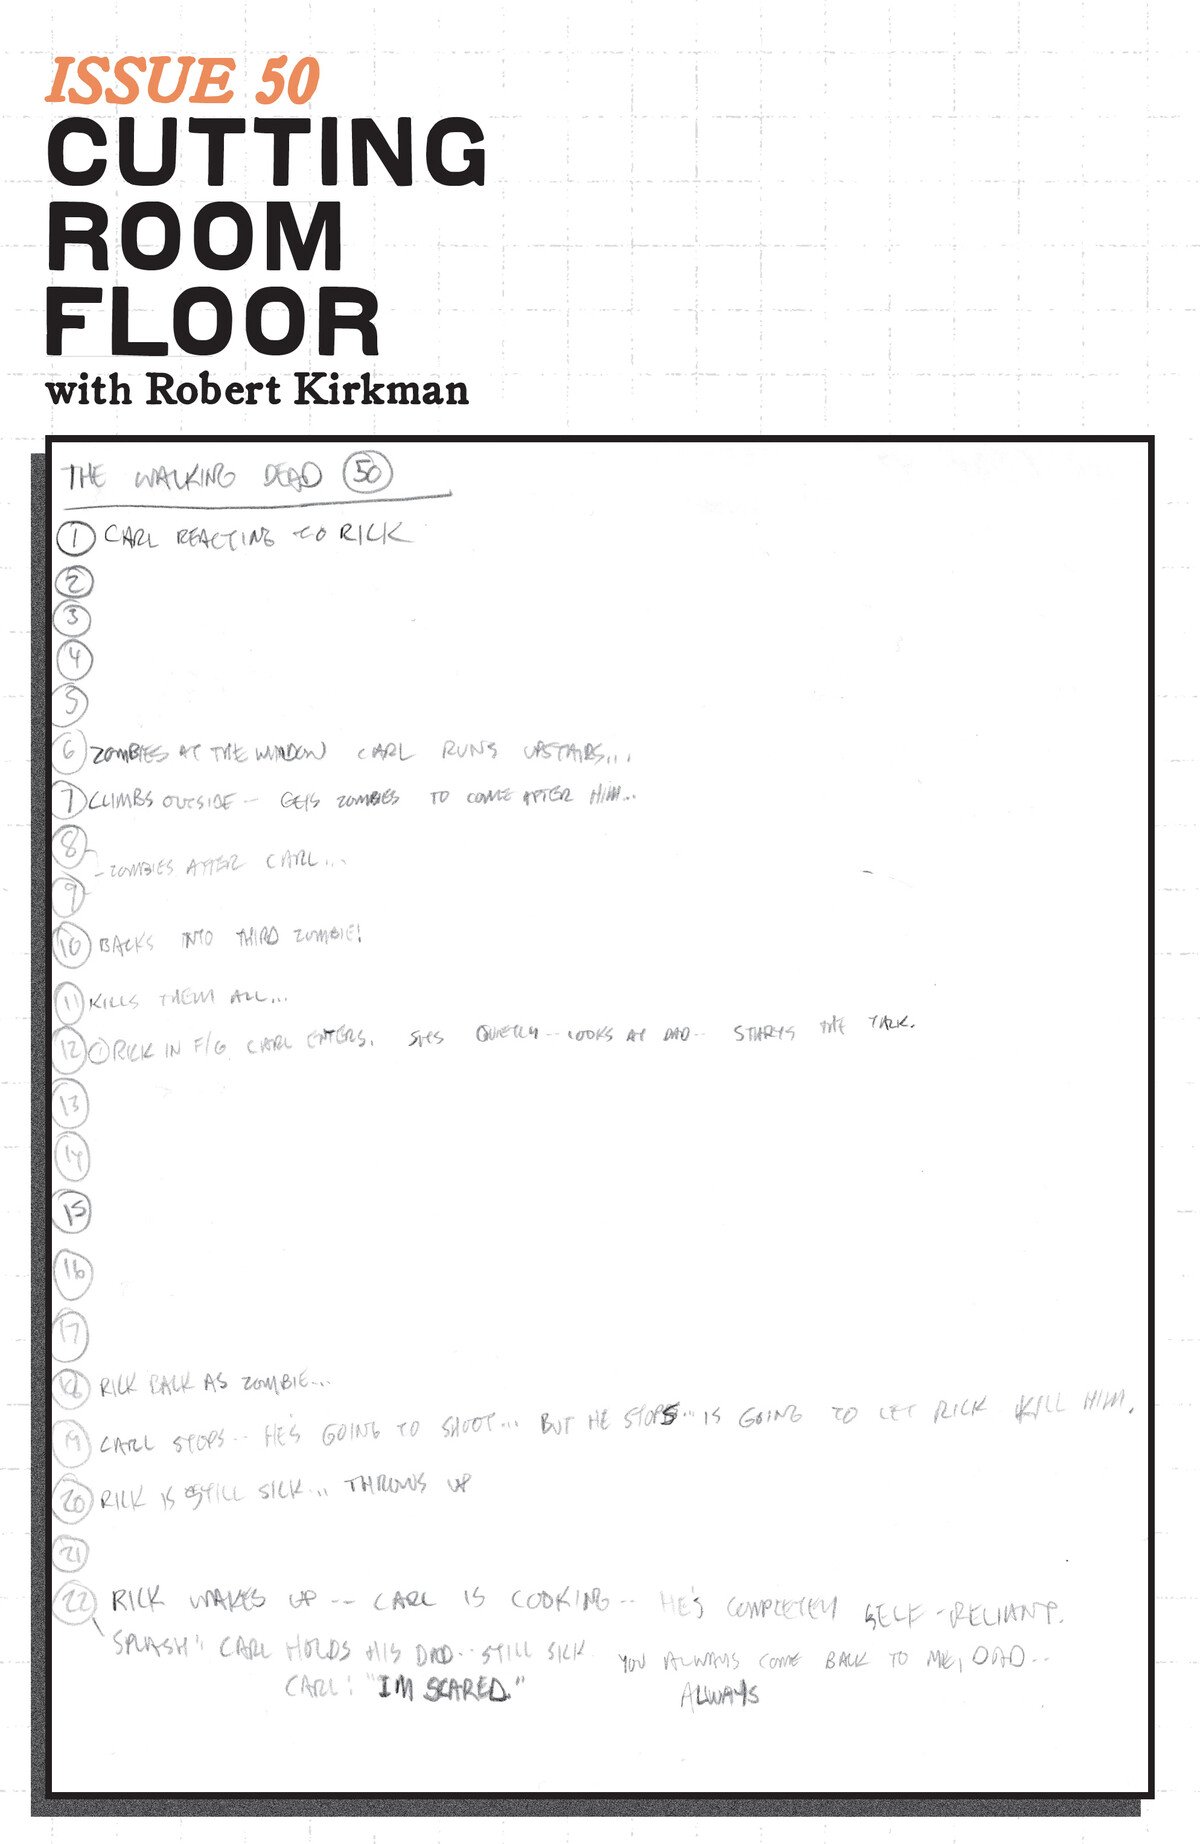 ISSUE 50
CUTTING
ROOM
FLOOR
with Robert Kirkman
THE WALKING DEAD 50
1 CARL REACTING TO RICK
2
3
4
5
6 ZOMBIES AT THE WINDOW CARL RUNS UPSTAIRS...
7 CLIMBS OUTSIDE - GETS ZOMBIES TO COME AFTER HIM...
8
- ZOMBIES AFTER CARL...
9
10 BACKS INTO THIRD ZOMBIE!
11 KILLS THEM ALL...
12 1 RICK IN F/G CARL ENTERS. SITS QUIETLY -- LOOKS AT DAD -- STARTS THE TALK.
13
14
15
16
17
18 RICK BACK AS ZOMBIE...
19 CARL STOPS -- HE'S GOING TO SHOOT... BUT HE STOPS... IS GOING TO LET RICK KILL HIM.
20 RICK IS STILL SICK... THROWS UP
21
22 RICK WAKES UP -- CARL IS COOKING -- HE'S COMPLETELY SELF-RELIANT.
SPLASH: CARL HOLDS HIS DAD -- STILL SICK. YOU ALWAYS COME BACK TO ME, DAD --
CARL: "I'M SCARED." ALWAYS